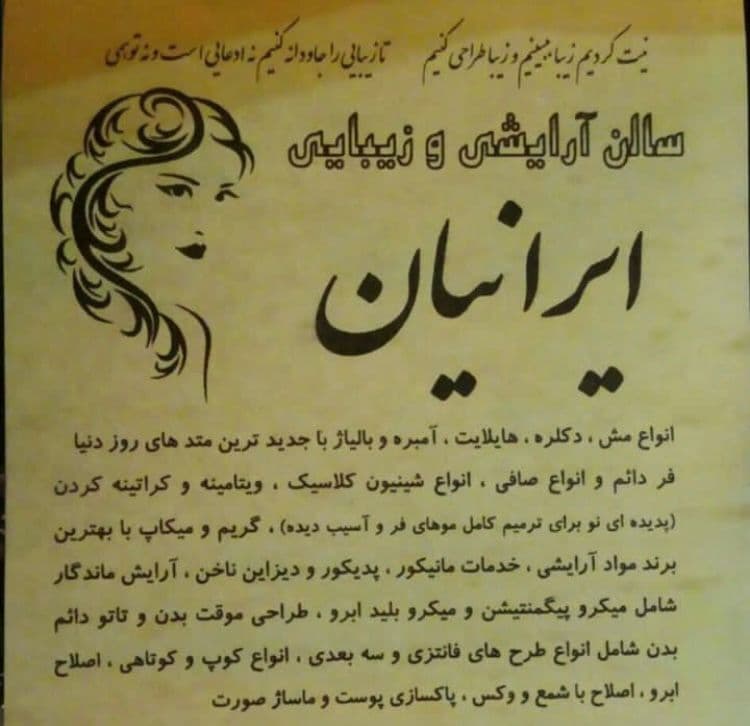 نیت کردیم زیبا ببینیم و زیبا طراحی کنیم تا زیبایی را جاودانه کنیم نه ادعایی است و نه توهمی
سالن آرایشی و زیبایی
ایرانیان
انواع مش ، دکلره ، هایلایت ، آمبره و بالیاژ با جدید ترین متد های روز دنیا
فر دائم و انواع صافی ، انواع شینیون کلاسیک ، ویتامینه و کراتینه کردن
(پدیده ای نو برای ترمیم کامل موهای فر و آسیب دیده) ، گریم و میکاپ با بهترین
برند مواد آرایشی ، خدمات مانیکور ، پدیکور و دیزاین ناخن ، آرایش ماندگار
شامل میکرو پیگمنتیشن و میکرو بلید ابرو ، طراحی موقت بدن و تاتو دائم
بدن شامل انواع طرح های فانتزی و سه بعدی ، انواع کوپ و کوتاهی ، اصلاح
ابرو ، اصلاح با شمع و وکس ، پاکسازی پوست و ماساژ صورت